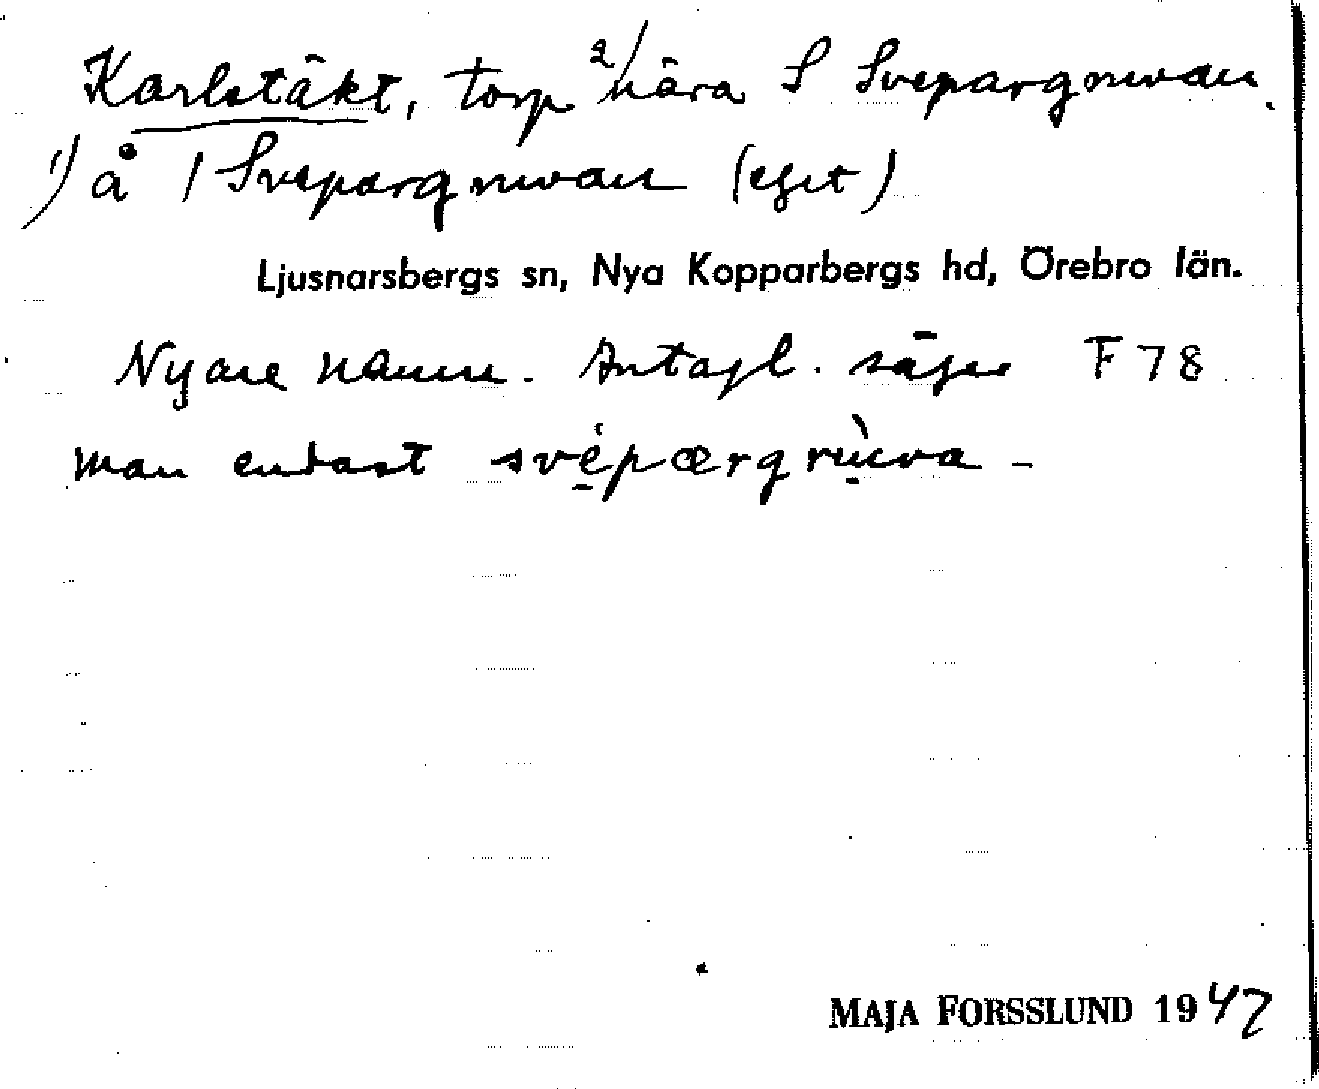 Karlstäkt, torp 2) nära S Svepargruvan.
1) å 1 Svepargruvan (eget)
Ljusnarsbergs sn, Nya Kopparbergs hd, Örebro län.
Nyare namn. Antagl. säger F 78
man endast svépærgrùva -
MAJA FORSSLUND 1947